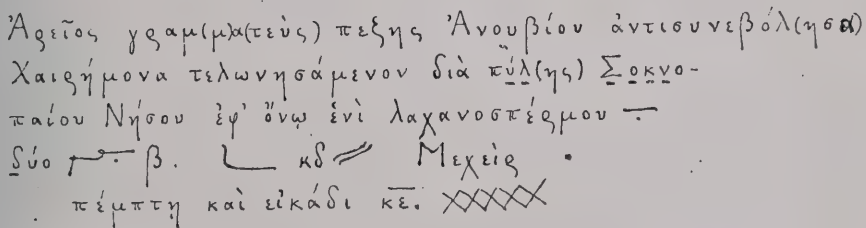 Ἀρεῖος γραμ(μ)α(τεὺς) πεξης Ἀνουβίου ἀντισυνεβόλ(ησα)
Χαιρήμονα τελωνησάμενον διὰ πύλ(ης) Σοκνο-
παίου Νήσου ἐφ' ὄνῳ ἑνὶ λαχανοσπέρμου
δύο β. κδ Μεχεὶρ
πέμπτῃ καὶ εἰκάδι κε.